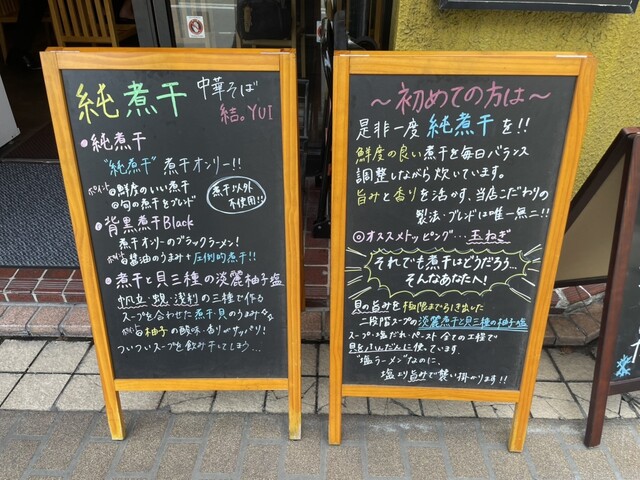 純煮干
中華そば
結。YUI
●純煮干
"純煮干" 煮干オンリー!!
ポイント ◎鮮度のいい煮干
◎旬の煮干をブレンド
煮干以外
不使用!!
●背黒煮干Black
煮干オンリーのブラックラーメン!
◎醤油のうまみ+圧倒的煮干!!
●煮干と貝三種の淡麗柚子塩
帆立・蜆・浅利の三種で作る
スープを合わせた煮干・貝のうまみ
柚子の酸味・香りがサッパリ!
ついついスープを飲み干してしまう…
～初めての方は～
是非一度 純煮干を!!
鮮度の良い煮干を毎日バランス
調整しながら炊いています。
旨みと香りを活かす、当店こだわりの
製法・ブレンドは唯一無二!!
◎オススメトッピング…玉ねぎ
それでも煮干はどうだろう…
そんなあなたへ!
貝の旨みを極限まで引き出した
二段階スープの淡麗煮干と貝三種の柚子塩
スープ・塩だれ・ペースト 全ての工程で
貝をふんだんに使ています。
"塩ラーメン"なのに、
塩より旨みで襲い掛かります!!